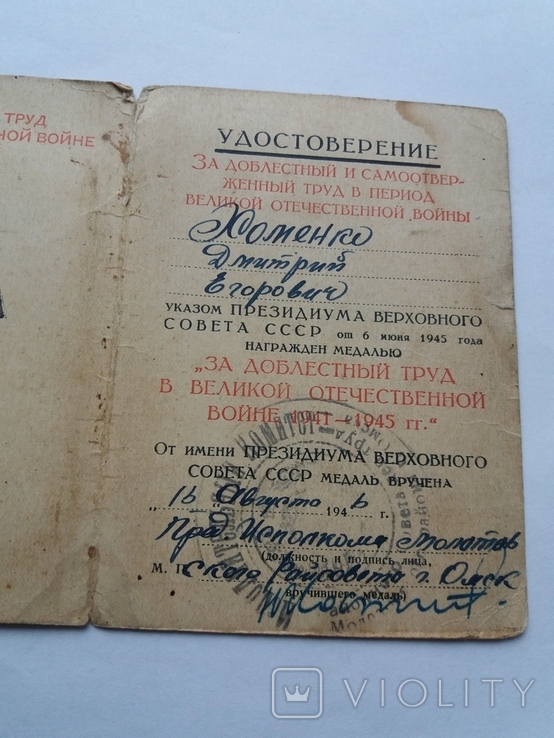 ТРУД
НОЙ ВОЙНЕ
УДОСТОВЕРЕНИЕ
ЗА ДОБЛЕСТНЫЙ И САМООТВЕР-
ЖЕННЫЙ ТРУД В ПЕРИОД
ВЕЛИКОЙ ОТЕЧЕСТВЕННОЙ ВОЙНЫ
Хоменко
Дмитрий
Егорович
УКАЗОМ ПРЕЗИДИУМА ВЕРХОВНОГО
СОВЕТА СССР от 6 июня 1945 года
НАГРАЖДЕН МЕДАЛЬЮ
„ЗА ДОБЛЕСТНЫЙ ТРУД
В ВЕЛИКОЙ ОТЕЧЕСТВЕННОЙ
ВОЙНЕ 1941—1945 гг.“
От имени ПРЕЗИДИУМА ВЕРХОВНОГО
СОВЕТА СССР МЕДАЛЬ ВРУЧЕНА
„16 Августа 1946 г.
Пред Исполкома Молотов
(должность и подпись лица,
М. П. ского Райсовета г. Омск
вручившего медаль)
VIOLITY